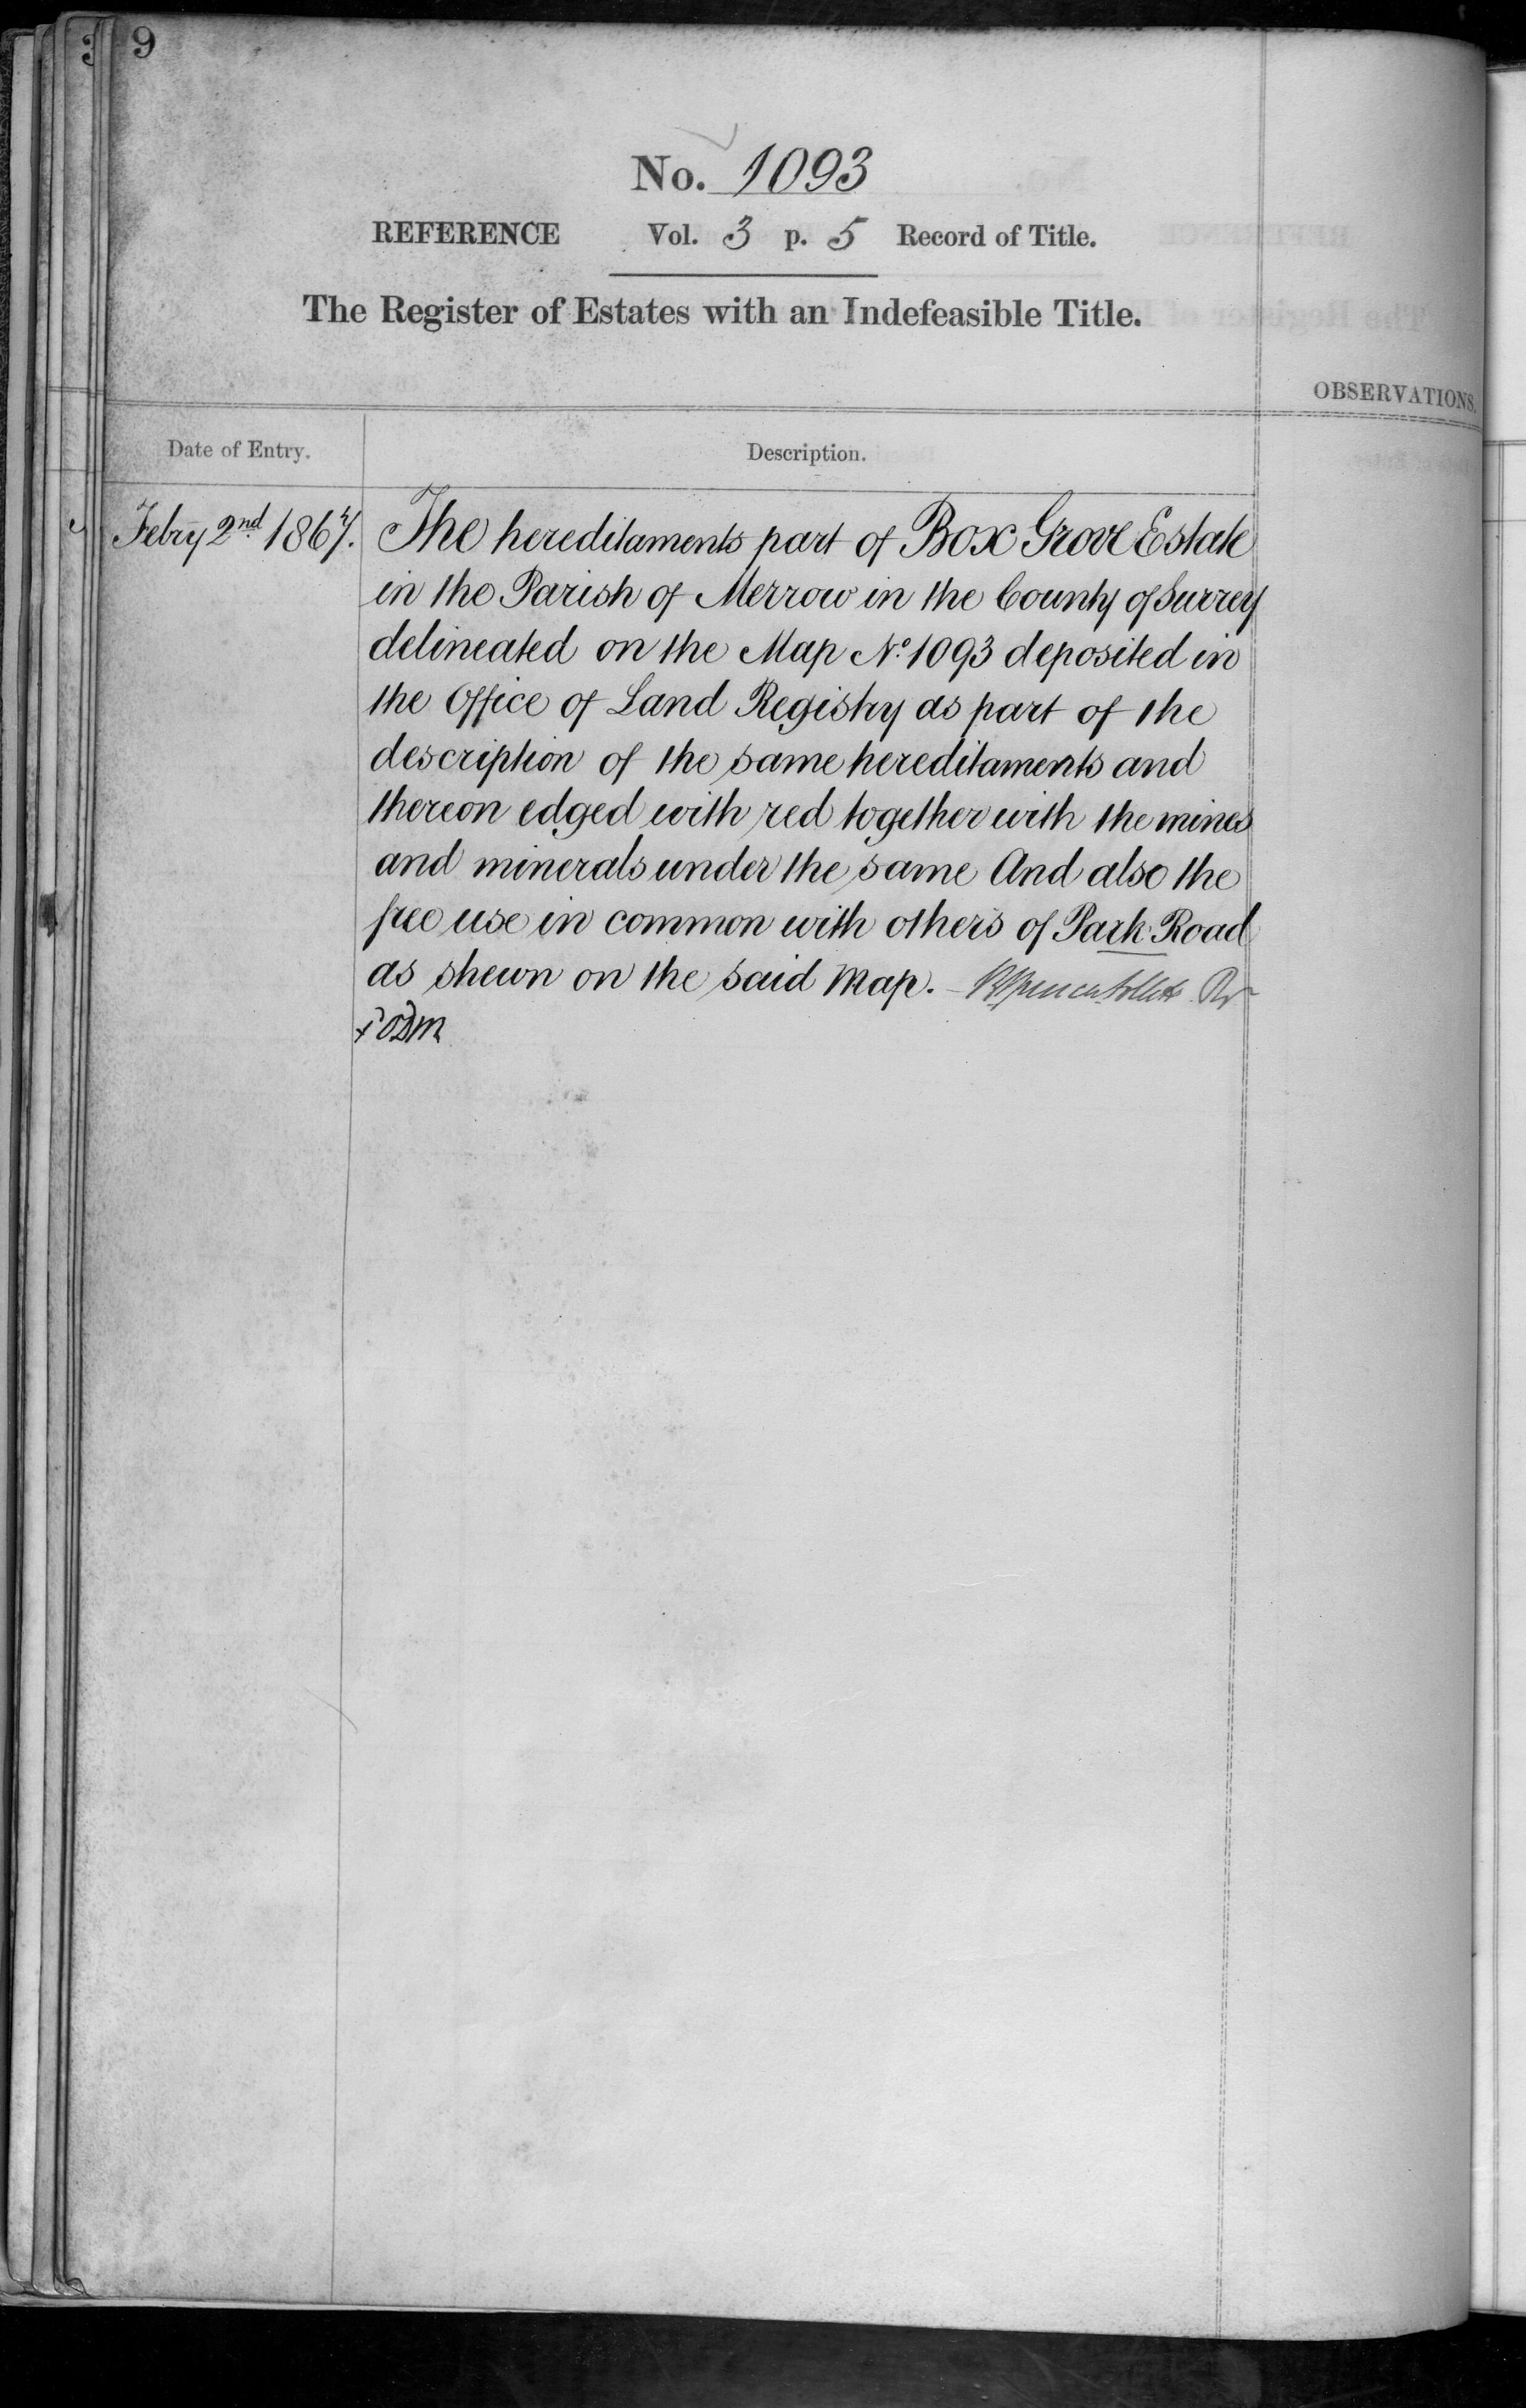 9
No. 1093
REFERENCE Vol. 3 p. 5 Record of Title.
The Register of Estates with an Indefeasible Title.
OBSERVATIONS.
Date of Entry.
Description.
Febry 2nd 1867.
The hereditaments part of Box Grove Estate
in the Parish of Merrow in the County of Surrey
delineated on the Map No. 1093 deposited in
the Office of Land Registry as part of the
description of the same hereditaments and
thereon edged with red together with the mines
and minerals under the same And also the
free use in common with others of Park Road
as shewn on the said Map.